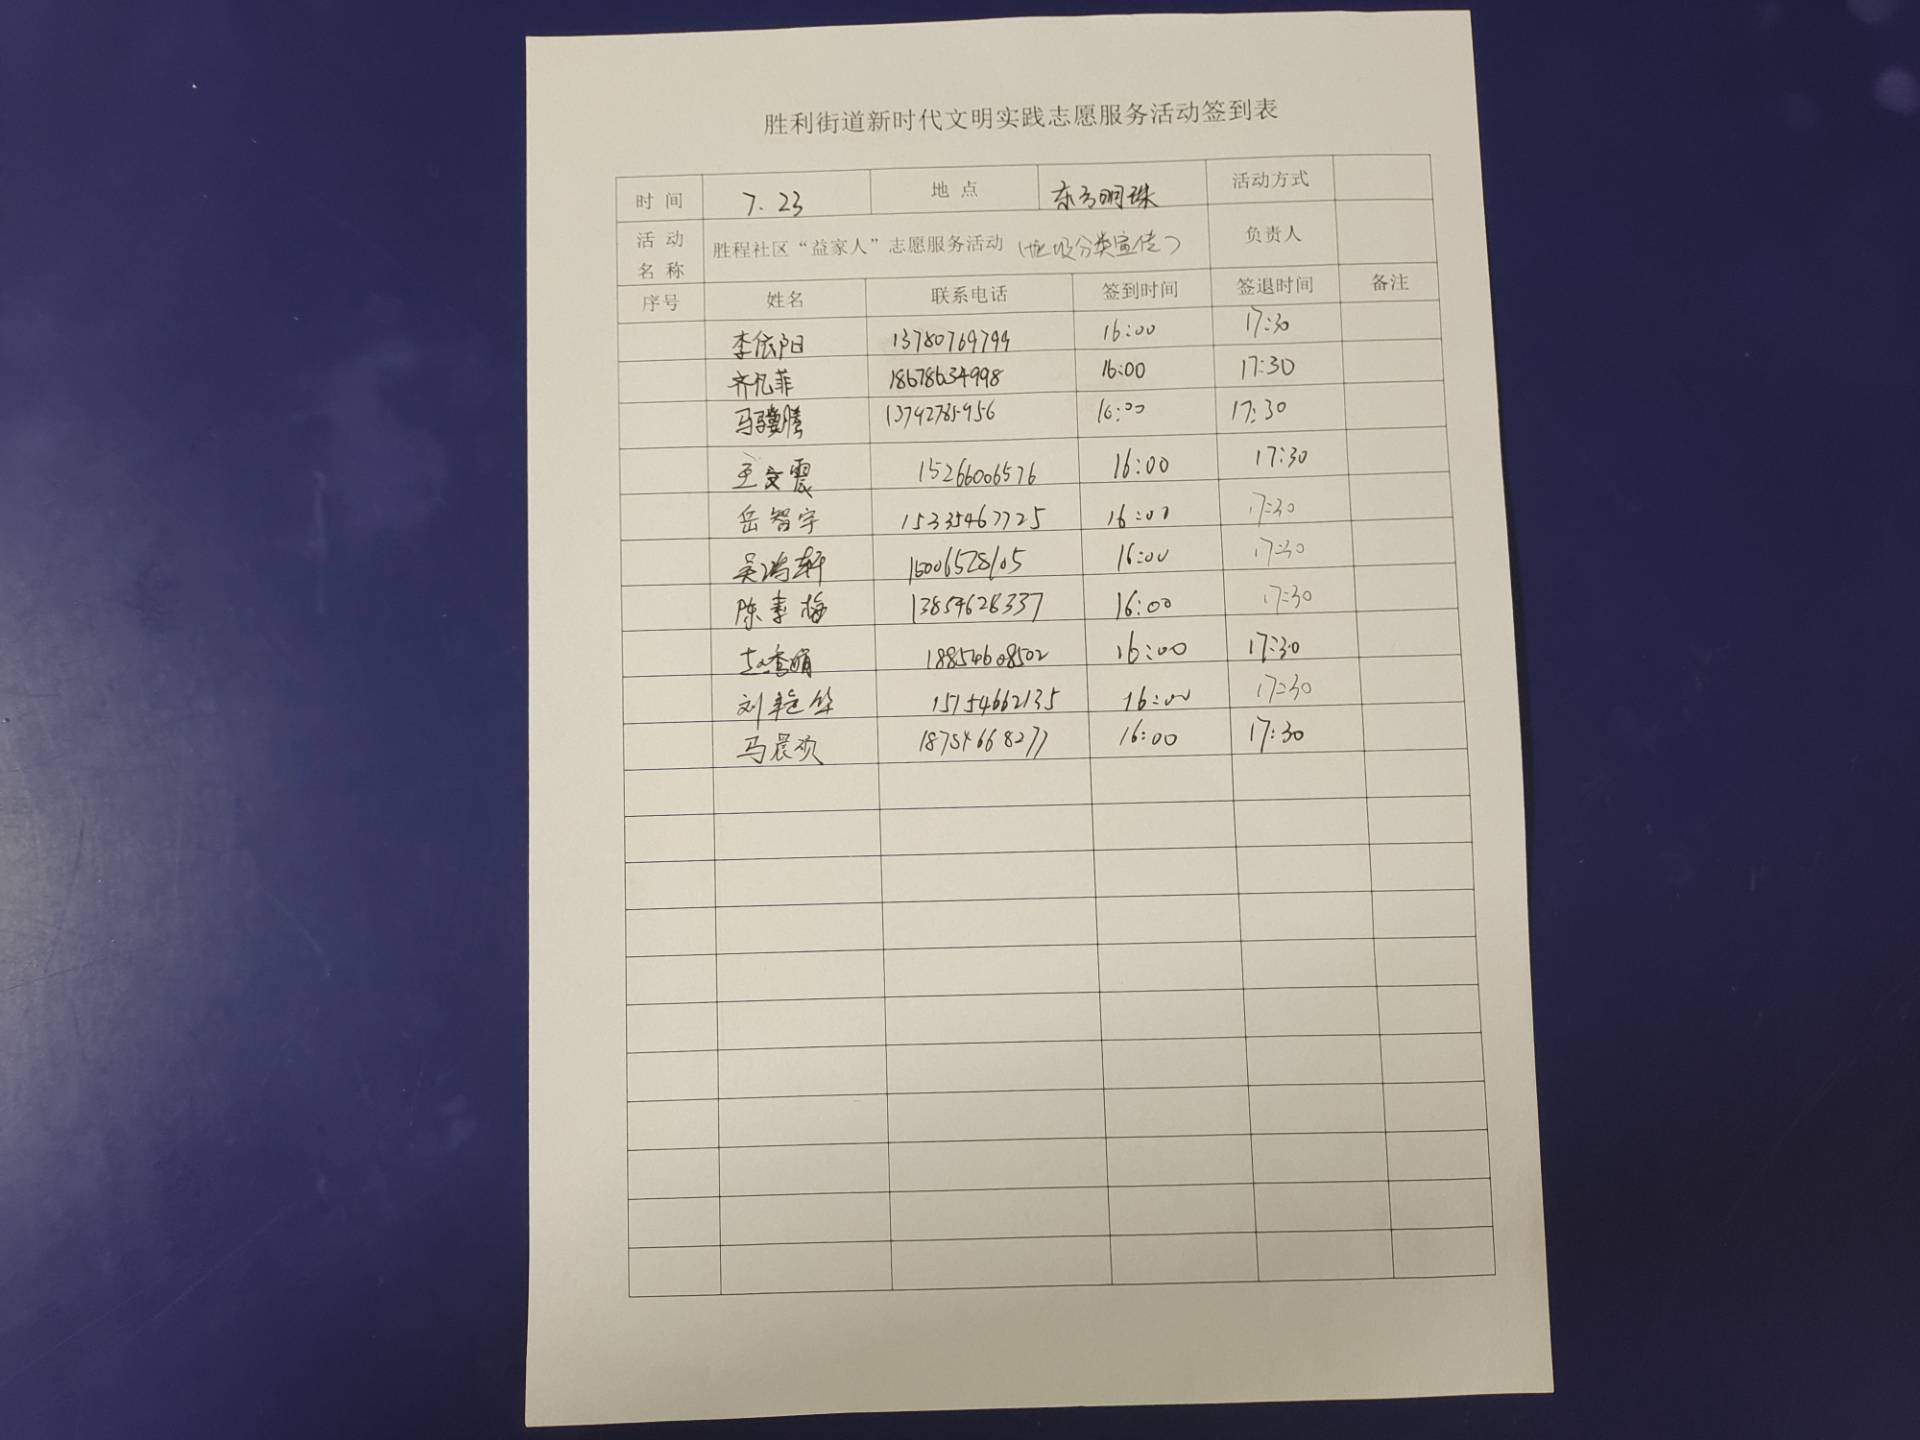 胜利街道新时代文明实践志愿服务活动签到表
时 间 7.23 地 点 东方明珠 活动方式
活 动 名 称 胜程社区“益家人”志愿服务活动（垃圾分类宣传） 负责人
序号 姓名 联系电话 签到时间 签退时间 备注
李依阳 13780769799 16:00 17:30
齐忆菲 18678634998 16:00 17:30
马骥腾 13792785956 16:00 17:30
王文震 15266006576 16:00 17:30
岳智宇 15335467725 16:00 17:30
吴鸿轩 16:00 17:30
陈素梅 13854628337 16:00 17:30
18854608502 16:00 17:30
刘艳华 15154662135 16:00 17:30
马晨欢 18754668277 16:00 17:30